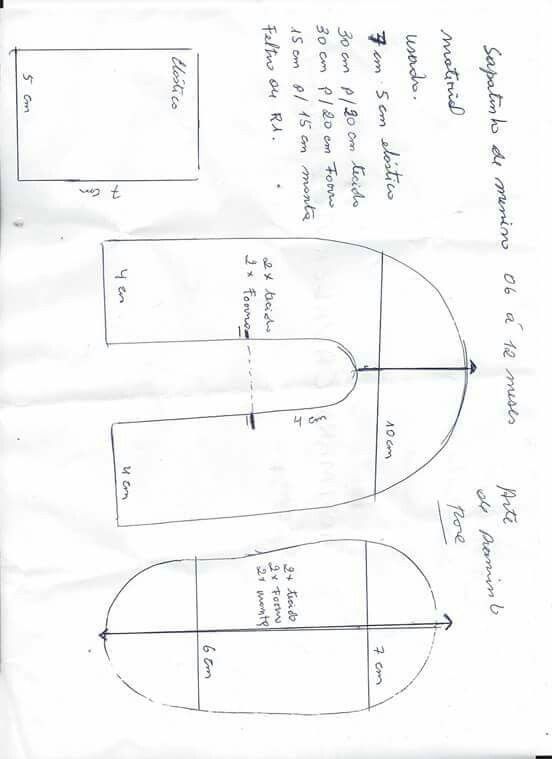 Sapatinho de menino 06 á 12 meses
material
usado.
7 cm · 5 cm elástico
30 cm p/ 20 cm tecido
30 cm p/ 20 Forro
15 cm p/ 15 cm manta
Feltro ou R1.
Arte
de
Rose
elástico
5 cm
7 cm
2x tecido
2x Forro
4 cm
4 cm
4 cm
10 cm
2x tecido
2x Forro
2x manta
6 cm
7 cm